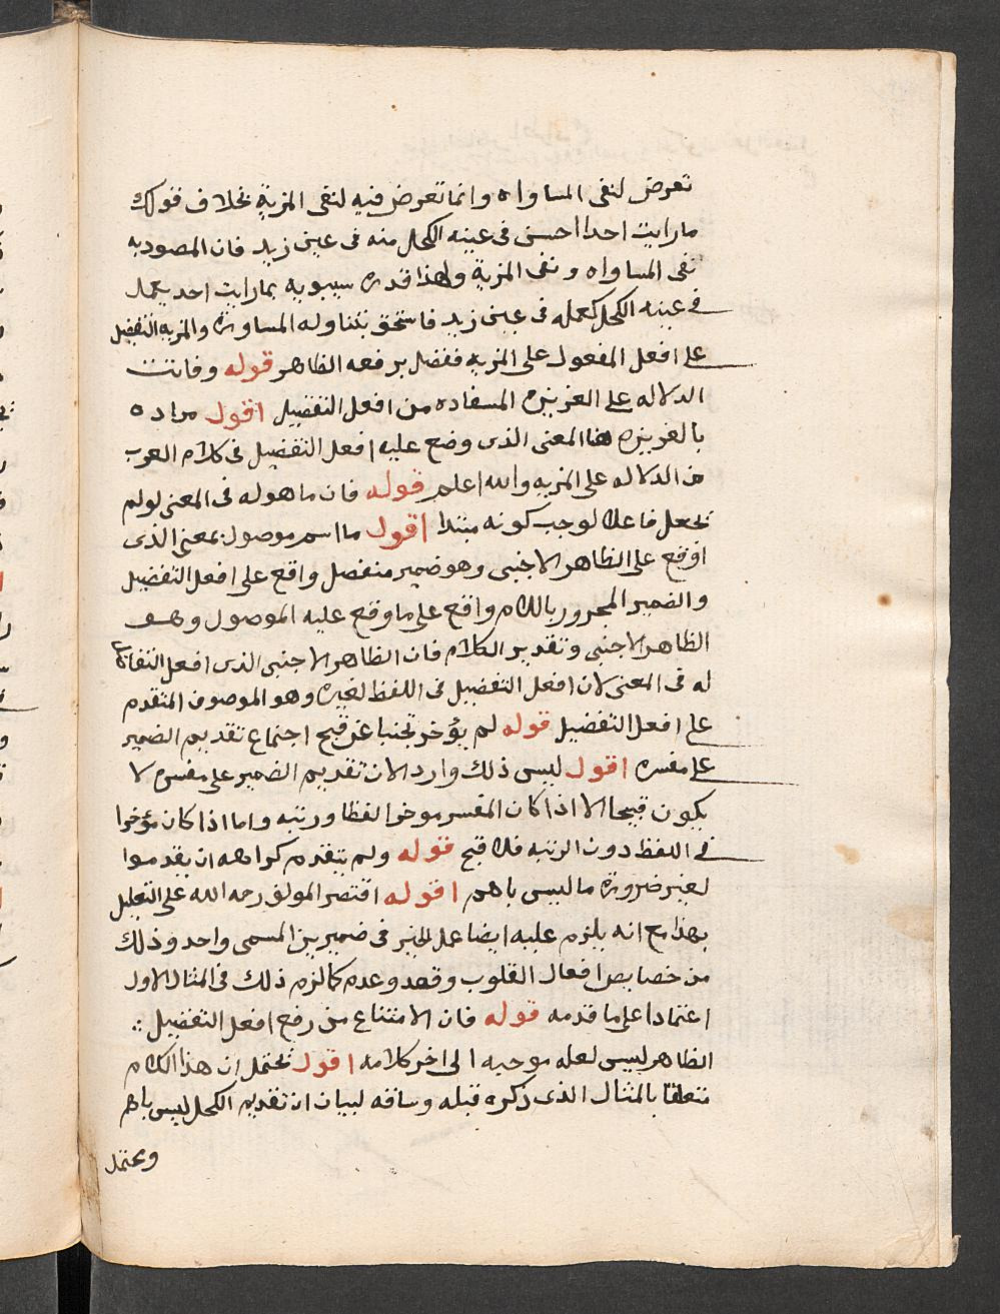 تعرض لنفى المساواه وانما تعرض فيه لنفى المزية بخلاف قولك
مارايت احدا احسن فى عينه الكحل منه فى عين زيد فان المصود به
نفى المساواه ونفى المزية ولهذا قدره سيبويه بمارايت احد يعمل
فى عينه الكحل كعمله فى عين زيد فاستحق بتناوله المساورة والمزيه التفضيل
على افعل المفعول على المزيه ففضل برفعه الظاهر قوله وفاتت
الدلاله على الغريزه المسفاده من افعل التفضيل اقول مراده
بالغريزه هنا المعنى الذى وضع عليه افعل التفضيل فى كلام العرب
من الدلاله على المزيه والله اعلم قوله فان ما هو له فى المعنى لو لم
يجعل فاعلا لوجب كونه مبتدا اقول ما اسم موصول بمعنى الذى
اوقع على الظاهر الاجنبى وهو ضمير منفصل واقع على افعل التفضيل
والضمير المجرور باللام واقع على ما وقع عليه الموصول وهو
الظاهر الاجنبى وتقدير الكلام فان الظاهر الاجنبى الذى افعل
له فى المعنى لان افعل التفضيل فى اللفظ لغيره وهو الموصوف المتقدم
على افعل التفضيل قوله لم يؤخر تجنبا عن قبح اجتماع تقديم الضمير
على مفسره اقول ليس ذلك وارد الان تقديم الضمير على مفسره لا
يكون قبيحا الا اذا كان المفسر موخرا لفظا ورتبه واما اذا كان مؤخرا
فى اللفظ دون الرتبه فلا قبح قوله ولم يتقدم كراهه ان يقدموا
لغير ضرورة ما ليس باهم اقوله اقتصر المولف رحمه الله على التعليل
بهذا مع انه يلزم عليه ايضا عمل الجر فى ضميرين المسمى واحد وذلك
من خصايص افعال القلوب وقصد وعدم كما لزم ذلك فى المثال الاول
اعتمادا على ما قدمه قوله فان الامتناع من رفع افعل التفضيل
الظاهر ليس لعله موجبه الى اخر كلامه اقول يحتمل ان هذا الكلام
متعلقا بالمثال الذى ذكره قبله وساقه لبيان ان تقديم الكحل ليس باهم
ويحتمل